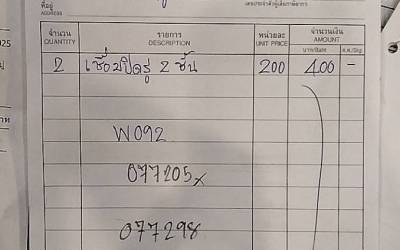 ที่อยู่ เลขประจำตัวผู้เสียภาษีอากร
ADDRESS
จำนวน รายการ หน่วยละ จำนวนเงิน
QUANTITY DESCRIPTION UNIT PRICE AMOUNT
บาท/Baht ส.ต./Stg.
2 เชื่อมปิดรู 2 ชิ้น 200 400 -
W092
077205x
077298
025
าท